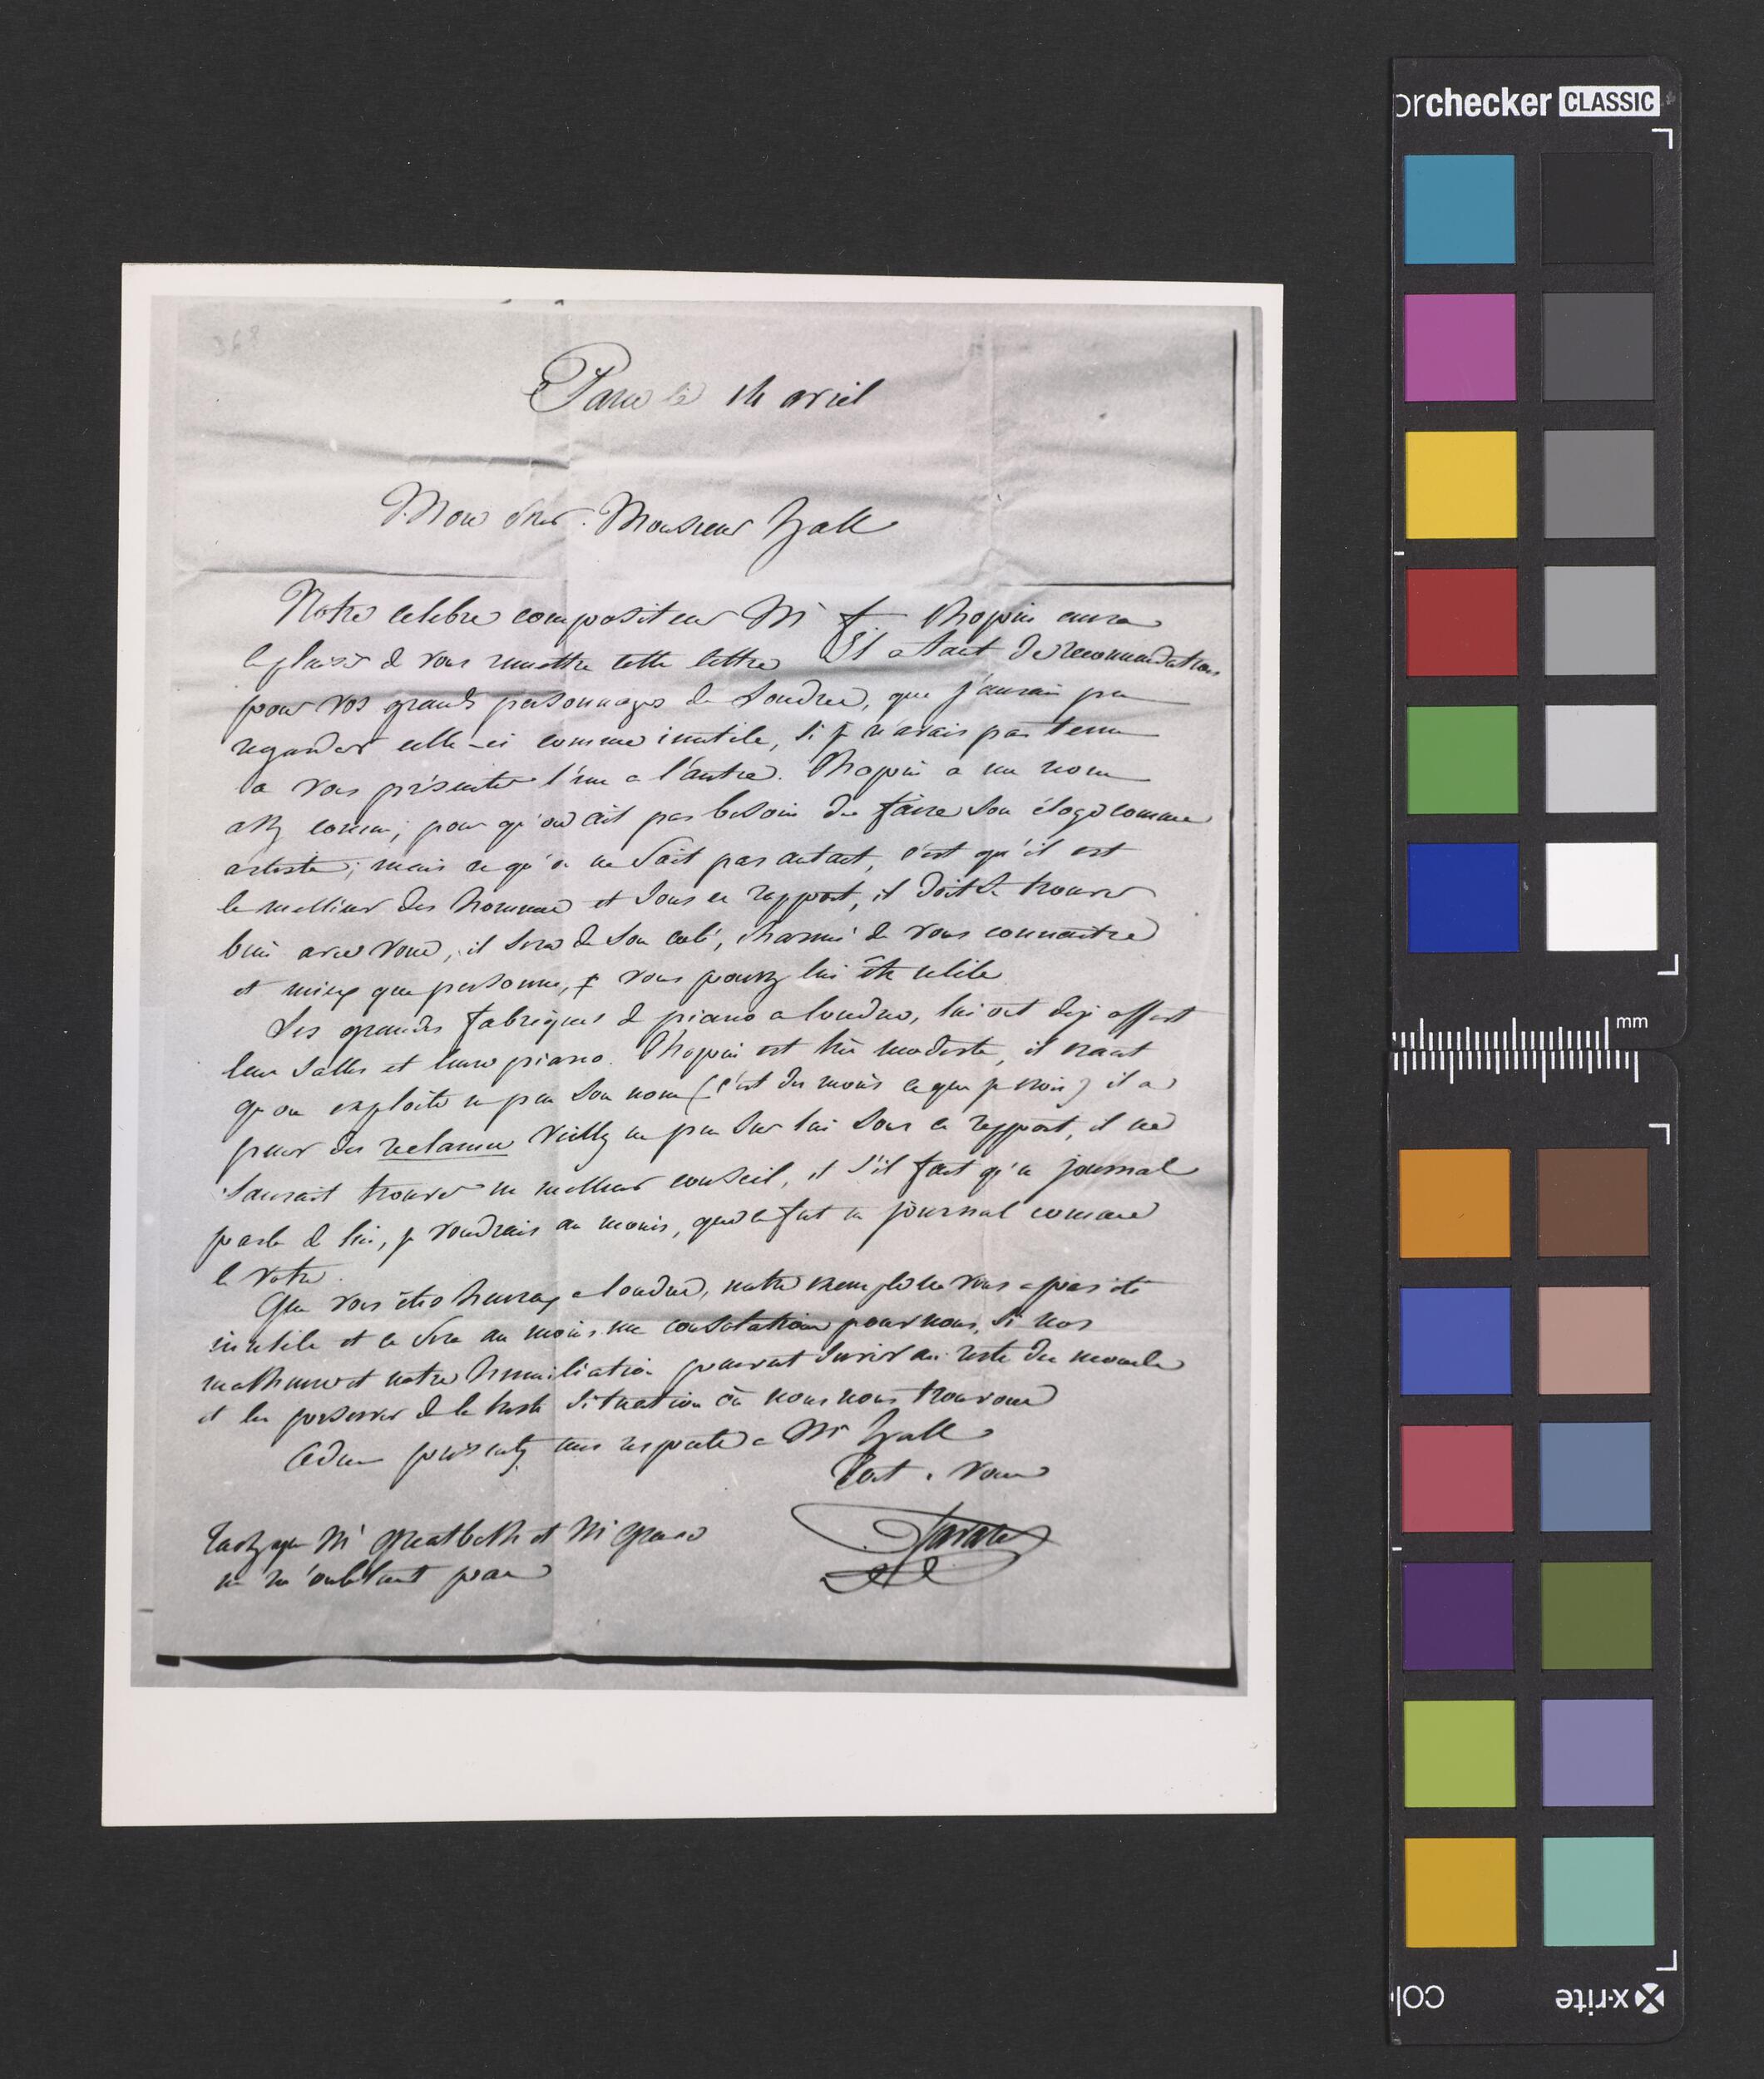 Paris le 14 avril
Mon cher Monsieur Hall
Notre celebre compositeur Mr F Chopin aura
le plaisir de vous remettre cette lettre Il a tant de recommandations
pour vos grands personnages de Londres, que j'aurais pu
regarder celle-ci comme inutile, si je n'avais pas tenu
a vous présenter l'un a l'autre. Chopin a un nom
assez connu, pour qu'on ait pas besoin de faire son éloge comme
artiste; mais ce qu'on ne sait pas autant, c'est qu'il est
le meilleur des hommes et sous ce rapport, il doit se trouver
bien avec vous, il sera de son coté, charmé de vous connaitre
et mieux que personne, vous pouvez lui être utile
Les grandes fabriques de piano a londres, lui ont deja offert
leur salles et leurs pianos. Chopin est très modeste, il craint
qu'on exploite un peu son nom (c'est du moins ce que je crois) il a
peur des reclames veillez un peu sur lui sous ce rapport, il ne
saurait trouver un meilleur conseil, et s'il faut qu'un journal
parle de lui, je voudrais au moins, que ce fut un journal comme
le votre.
Que vous êtes heureux a londres, notre exemple ne vous a pas été
inutile et ce sera au moins une consolation pour nous, si nos
malheurs et notre humiliation peuvent servir au reste du monde
et les preserver de la triste situation où nous nous trouvons
presentez mes respects a Mr Hall
Tout a vous
que Mr Greatbatch et Mr
ne m'oublient pas
orchecker CLASSIC
mm
x-rite
col